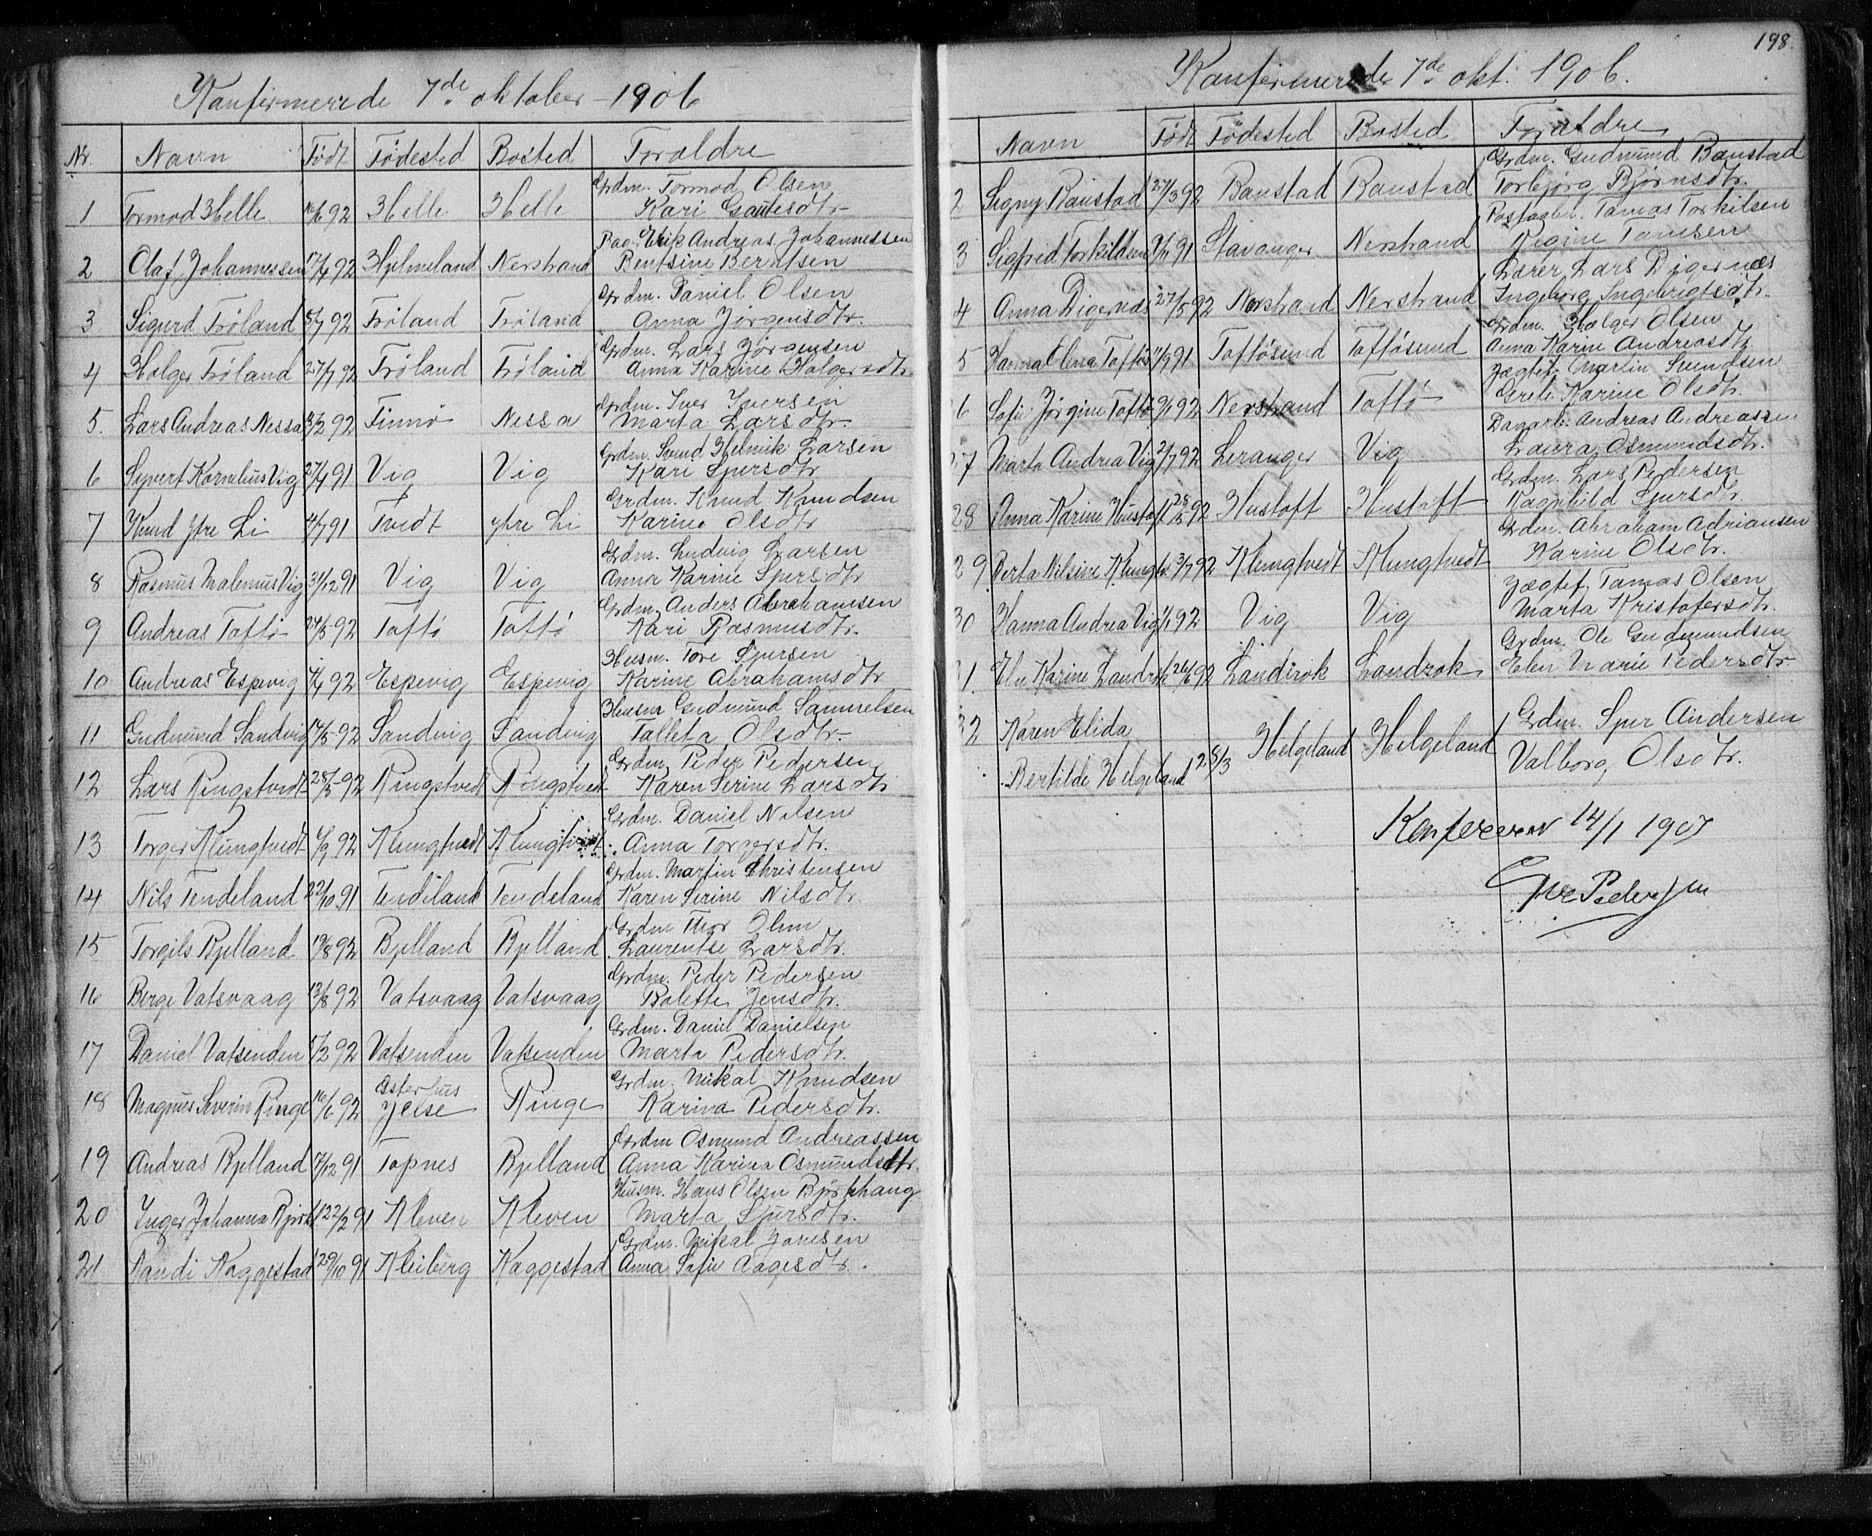 Konfirmerede 7de oktober 1906
Nr. Navn Født Fødested Bosted Forældre
1 Tormod Helle 16/6 92 Helle Helle Grdm. Tormod Olsen
Kari Gautesdtr
2 Olaf Johannessen 17/4 92 Hjelmeland Nerstrand Erik Andreas Johannessen
Bentsine Berntsen
3 Sigurd Frøland 8/7 92 Frøland Frøland Grdm. Daniel Olsen
Anna Jørgensdtr.
4 Holger Frøland 27/7 92 Frøland Frøland Grdm. Lars Jørgensen
Anna Karine Holgersdtr.
5. Lars Andreas Nessa 3/2 92 Finnø Nessa Grdm. Iver Iversen
Marta Larsdtr.
6 Syvert Kornelius Vig 27/9 91 Vig Vig Grdm. Svend Helmik Larsen
Kari Sjursdtr
7 Knud ytre Li 4/7 91 Tvedt ytre Li Grdm. Knud Knudsen
Karine Olsdtr
8 Rasmus Malenius Vig 31/12 91 Vig Vig Grdm. Ludvig Larsen
Anna Karine Sjursdtr
9 Andreas Toftø 24/5 92 Toftø Toftø Grdm. Anders Abrahamsen
Kari Rasmusdtr.
10 Andreas Espevig 4/4 92 Espevig Espevig Husm. Tore Sjursen
Karine Abrahamsdtr
11 Gudmund Sandvig 14/5 92 Sandvig Sandvig Husm Gudmund Samuelsen
Talleta Olsdtr
12 Lars Ringstvedt 28/5 92 Ringstvedt Ringstvedt Grdm. Peder Pedersen
Karen Serine Larsdtr
13 Torger Klungtvedt 6/9 92 Klungtvedt Klungtvedt Grdm. Daniel Nilsen
Anna Torgersdtr.
14 Nils Tendeland 22/10 91 Tendeland Tendeland Grdm. Martin Christensen
Karen Serine Nilsdtr.
15 Torgils Bjelland 19/8 92 Bjelland Bjelland Grdm Thor Olsen
Laurentse Larsdtr.
16 Berge Vatsvaag 13/8 92 Vatsvaag Vatsvaag Grdm. Peder Pedersen
Bolette Jensdtr.
17 Daniel Vatsenden 5/2 92 Vatsenden Vatsenden Grdm. Daniel Danielsen
Marta Pedersdtr.
18 Magnus Severin Ringe 16/6 92 Østerhus Jelse Ringe Grdm. Mikal Knudsen
Karina Pedersdtr.
19 Andreas Bjelland 7/12 91 Topnes Bjelland Grdm Osmund Andreassen
Anna Karina Osmundsdtr.
20 Inger Johanna 22/2 91 Kleven Kleven Husm. Hans Olsen Bjørkhaug
Marta Sjursdtr.
21 Randi Kaggestad 29/10 91 Kleiberg Kaggestad Grdm. Mikal Jonesen
Anna Sofie Aagesdtr.
198.
Konfirmerede 7de okt. 1906.
Navn Født Fødested Bosted Forældre
2 Signy Baustad 27/3 92 Baustad Baustad Grdm. Gudmund Baustad
Torbjørg Bjørnsdtr.
3 Sigfrid Torkildsen 9/11 91 Stavanger Nerstrand Tomas Torkilsen
Regine Tomsen
4 Anna Digernæs 27/5 92 Nerstrand Nerstrand Lærer Lars Digernæs
Ingeborg Ingebrigtsdtr.
5 Hanna Olena Toftøs 11/9 91 Toftøsund Toftøsund Grdm. Holger Olsen
Anna Karine Andreasdtr
6 Sofie Jørgine Toftø 9/1 92 Nerstrand Toftø Jægtef. Martin Svendsen
Grete Karine Olsdtr.
7 Marta Andrea Vig 2/7 92 Leranger Vig Dagarb. Andreas Andreassen
Laura Osmundsdtr.
28 Anna Karine Hustoft 92 Hustoft Hustoft Grdm. Lars Pedersen
Ragnhild Sjursdtr.
29 Berta Nilsine Klungtv 3/7 92 Klungtvedt Klungtvedt Grdm. Abraham Adriansen
Karine Olsdtr.
30 Hanna Andrea Vig 1/1 92 Vig Vig Jægtef. Tomas Olsen
Marta Kristofersdtr.
31. Elen Karine Landrok 26/6 92 Landrok Landrok Grdm. Ole Gudmundsen
Elen Marie Pedersdtr
32 Karen Elida
Bertilde Helgeland 28/3 Helgeland Helgeland Grdm. Sjur Andersen
Valborg Olsdtr.
Konfereret 14/1 1907
Pedersen